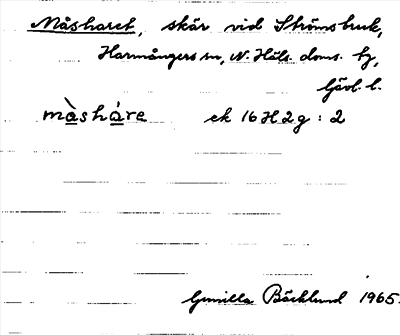 Måsharet, skär vid Strömsbruk,
Harmångers sn, N. Häls. doms. fg,
Gävl. l.
màsháre ek 16H2g : 2
Gunilla Bäcklund 1965.